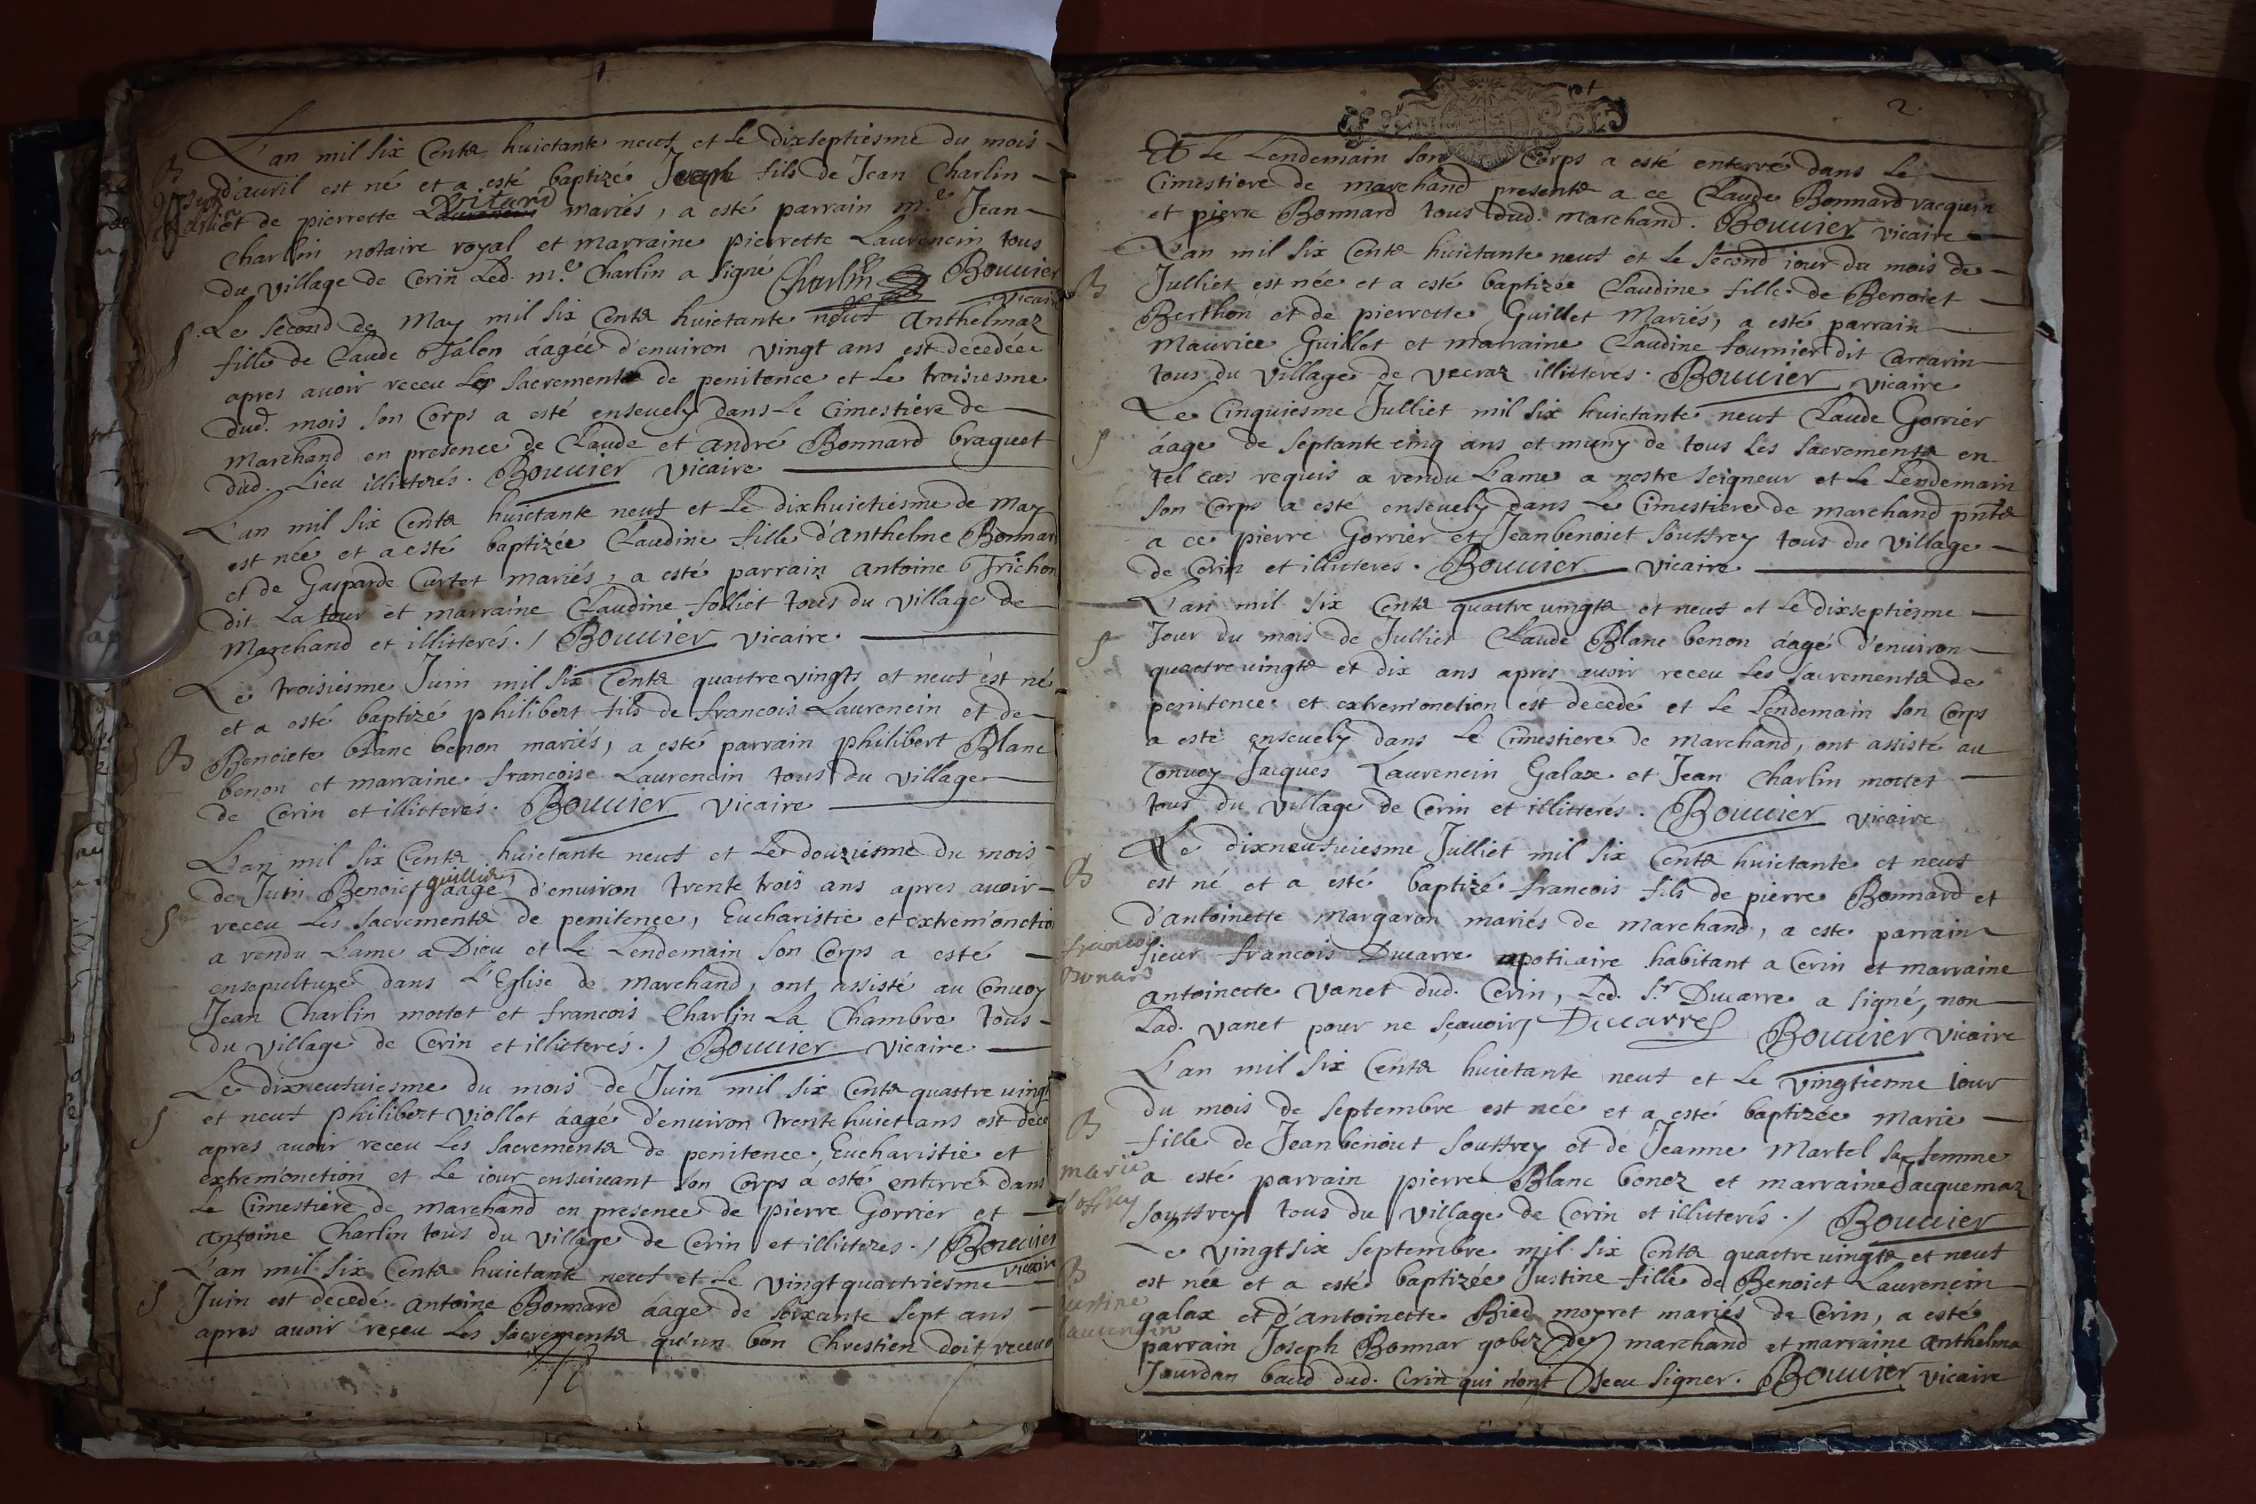 L'an mil six Cents huictante neuf et le dixseptiesme du mois
B d'auril est né et a esté baptizé Joseph fils de Jean Charlin
et de pierrette Vitard mariés, a esté parrain me Jean
Charlin notaire royal et marraine pierrette Laurencin tous
du village de Cerin Led. me Charlin a signé Charlin Bouuier
vicaire
S Le second de May mil six Cents huictante neuf Anthelmaz
fille de Claude Jalon áagée d'enuiron vingt ans est décedée
apres auoir receu les sacrements de penitence et le troisiesme
dud. mois son Corps a esté enseuely dans le Cimestiere de
Marchand en presence de Claude et andré Bonnard braquet
dud. Lieu illitterés. Bouuier vicaire
L'an mil six Cents huictante neuf et Le dixhuictiesme de May
est née et a esté baptizée Claudine fille d'anthelme Bonnar
et de Gasparde Curtet mariés, a esté parrain antoine Trichon
dit La tour et marraine Claudine folliet tous du village de
Marchand et illitterés./ Bouuier vicaire.
Le troisiesme Juin mil six Cents quattre vingts et neuf est né
et a esté baptizé philibert fils de francois Laurencin et de
B Benoiete blanc benon mariés, a esté parrain philibert Blanc
benon et marraine francoise Laurencin tous du village
de Cerin et illitterés. Bouuier vicaire
L'an mil six Cents huictante neuf et Le douziesme du mois
guillier
de Juin Benoict áagé d'enuiron trente trois ans apres auoir
S receu Les sacrements de penitence, Eucharistie et extrem'onctio
a rendu L'ame a Dieu et Le Lendemain son Corps a esté
ensepulturé dans L'Eglise de Marchand, ont assisté au Conuoy
Jean Charlin mottet et francois Charlin La Chambre tous
du village de Cerin et illitterés./ Bouuier vicaire
Le dixneufuiesme du mois de Juin mil six Cents quattre uingt
S et neuf philibert viollet áagé d'enuiron trente huict ans est dece
apres auoir receu Les sacrements de penitence, Eucharistie et
extrem'onction et Le iour ensuiuant son Corps a esté enterré dans
Le Cimestiere de marchand en presence de pierre Gorrier et
antoine Charlin tous du village de Cerin et illitteres./ Bouuier
vicaire
L'an mil six Cents huictante neuf et Le vingtquattriesme
S Juin est decedé antoine Bonnard áagé de soixante sept ans
apres auoir reçeu Les sacrements qu'un bon Chrestien doit receuo
2
Et Le Lendemain son Corps a esté enterré dans Le
Cimestiere de marchand presents a ce Claude Bonnard vacquin
et pierre Bonnard tous dud. marchand. Bouuier vicaire
L'an mil six Cents huictante neuf et Le second iour du mois de
B Julliet est née et a esté baptizée Claudine fille de Benoict
Berthon et de pierrette Guillet Mariés, a esté parrain
Maurice Guillet et marraine Claudine fournier dit Camarin
tous du village de vecraz illitterés. Bouuier vicaire
Le Cinquiesme Julliet mil six huictante neuf Claude Gorrier
S áagé de septante cinq ans et muny de tous Les sacrements en
tel cas requis a rendu L'ame a nostre seigneur et Le Lendemain
son Corps a esté enseuely dans Le Cimestiere de marchand pnts
a ce pierre Gorrier et Jeanbenoict souffrey tous du village
de Cerin et illitterés. Bouuier vicaire
L'an mil six Cents quattre uingts et neuf et Le dixseptiesme
S Jour du mois de Julliet Claude Blanc benon áagé d'enuiron
quattre uingts et dix ans apres auoir receu Les sacrements de
penitence et extrem'onction est decedé et Le Lendemain son Corps
a esté enseuely dans Le Cimestiere de Marchand, ont assisté au
Conuoy Jacques Laurencin Galax et Jean Charlin mottet
tous du village de Cerin et illitterés. Bouuier vicaire
Le dixneufuiesme Julliet mil six Cents huictante et neuf
B est né et a esté baptizé francois fils de pierre Bonnard et
d'antoinette margaron mariés de marchand, a esté parrain
francois sieur francois Ducarre apoticaire habitant a Cerin et marraine
Bonard
antoinette vanet dud. Cerin, Led. Sr Ducarre a signé, non
Lad. vanet pour ne sçauoir, Ducarre Bouuier vicaire
L'an mil six Cents huictante neuf et Le vingtienne iour
B du mois de septembre est née et a esté baptizée Marie
fille de Jeanbenoict souffrey et de Jeanne Martel sa femme
marie a esté parrain pierre Blanc bonez et marraine Jacquemaz
soffrey souffrey tous du village de Cerin et illitterés./ Bouuier
Le vingtsix septembre mil six Cents quattre uingts et neuf
B est née et a esté baptizée Justine fille de Benoict Laurencin
justine galax et d'antoinette Bied moyret mariés de Cerin, a esté
laurencin parrain Joseph Bonnar gobez de marchand et marraine anthelma
Jourdan baud dud. Cerin qui n'ont sceu signer. Bouuier vicaire